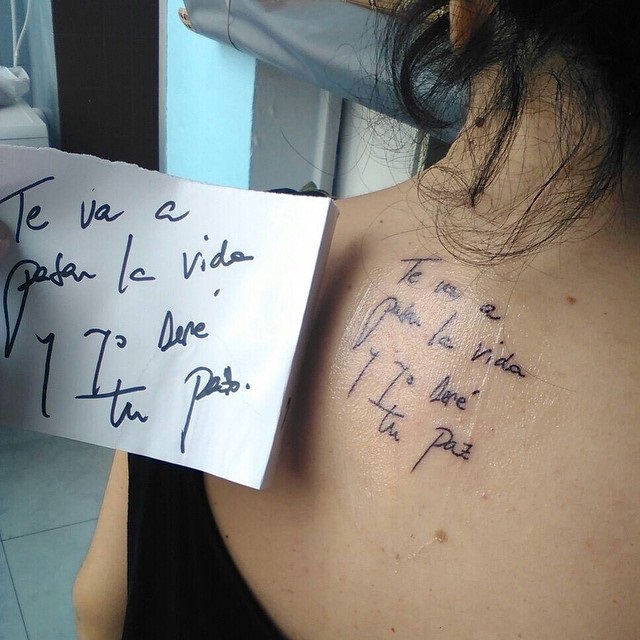 Te va a
pesar la vida
y yo seré
tu paz.
Te va a
pesar la vida
y yo seré
tu paz